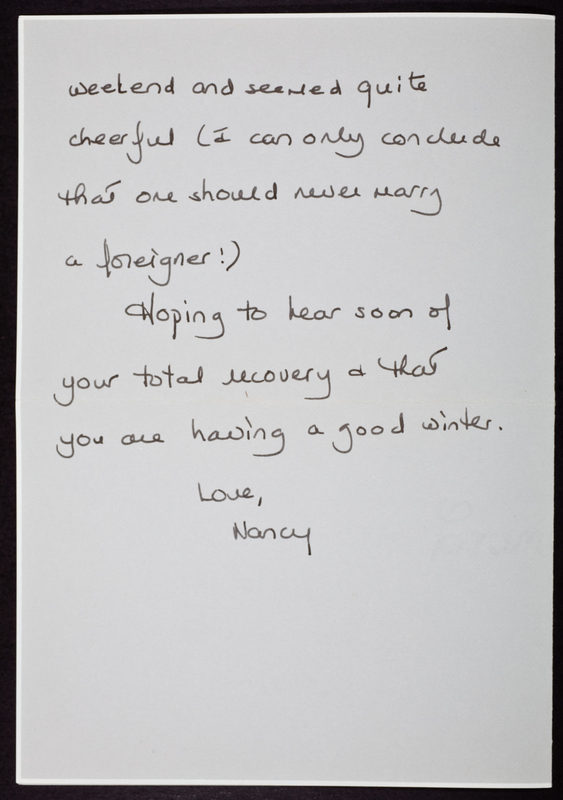 weekend and seemed quite
cheerful (I can only conclude
that one should never marry
a foreigner!)
Hoping to hear soon of
your total recovery & that
you are having a good winter.
Love,
Nancy